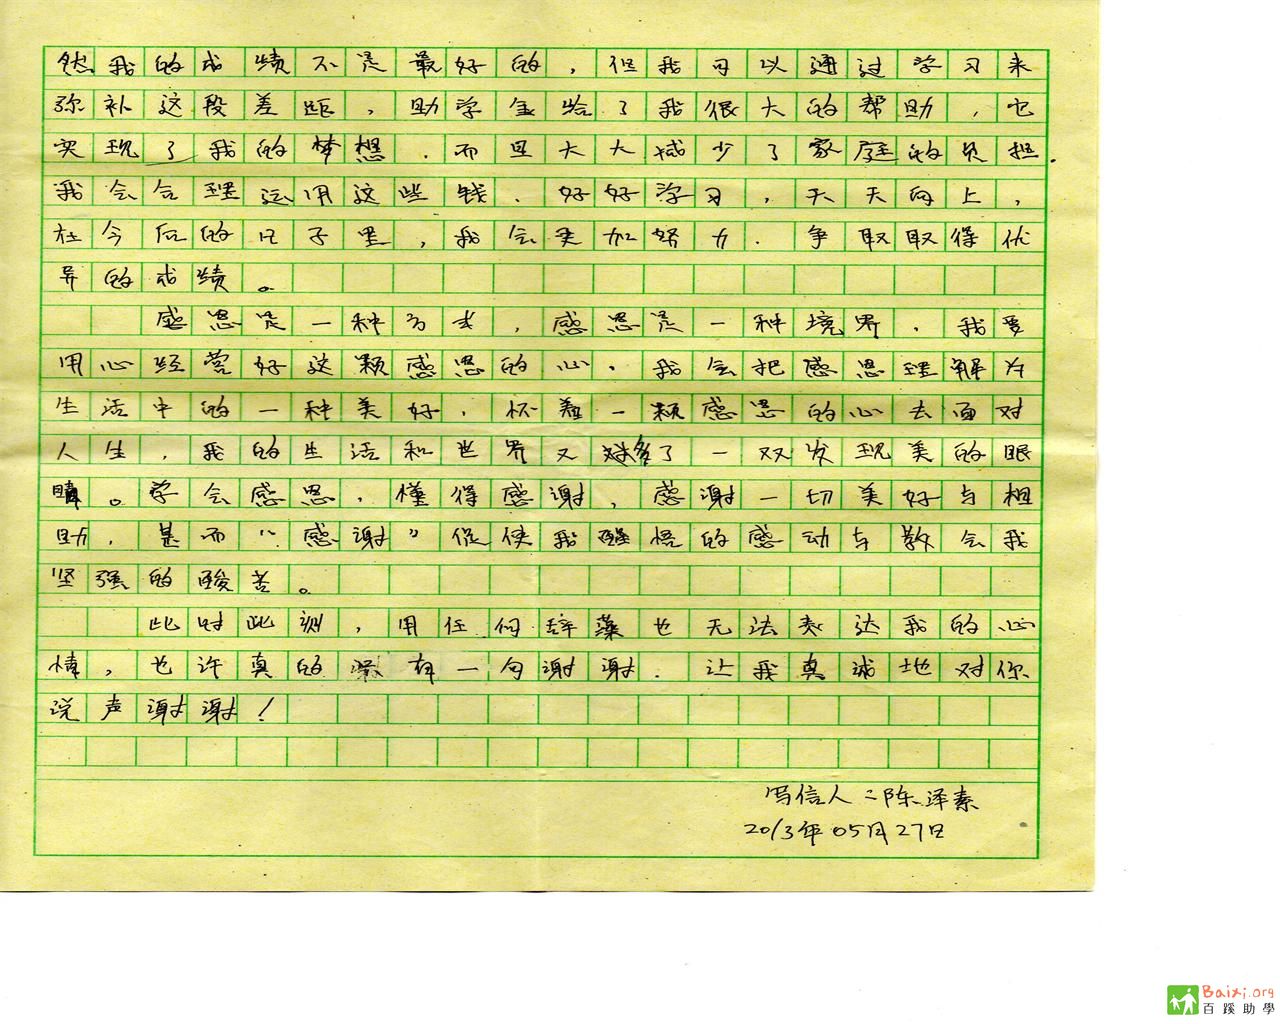 然我的成绩不是最好的，但我可以通过学习来
弥补这段差距，助学金给了我很大的帮助，它
实现了我的梦想，而且大大减少了家庭的负担．
我会合理运用这些钱．好好学习，天天向上，
在今后的日子里，我会更加努力．争取取得优
异的成绩。
感恩是一种方式，感恩是一种境界．我要
用心经营好这颗感恩的心．我会把感恩理解为
生活中的一种美好．怀着一颗感恩的心去面对
人生，我的生活和世界又多了一双发现美的眼
睛。学会感恩．懂得感谢，感谢一切美好与相
助，甚而“感谢”促使我醒悟的感动与教会我
坚强的酸苦。
此时此刻，用任何辞藻也无法表达我的心
情，也许真的只有一句谢谢．让我真诚地对你
说声谢谢！
写信人：陈泽素
2013年05月27日
Baixi.org
百蹊助學